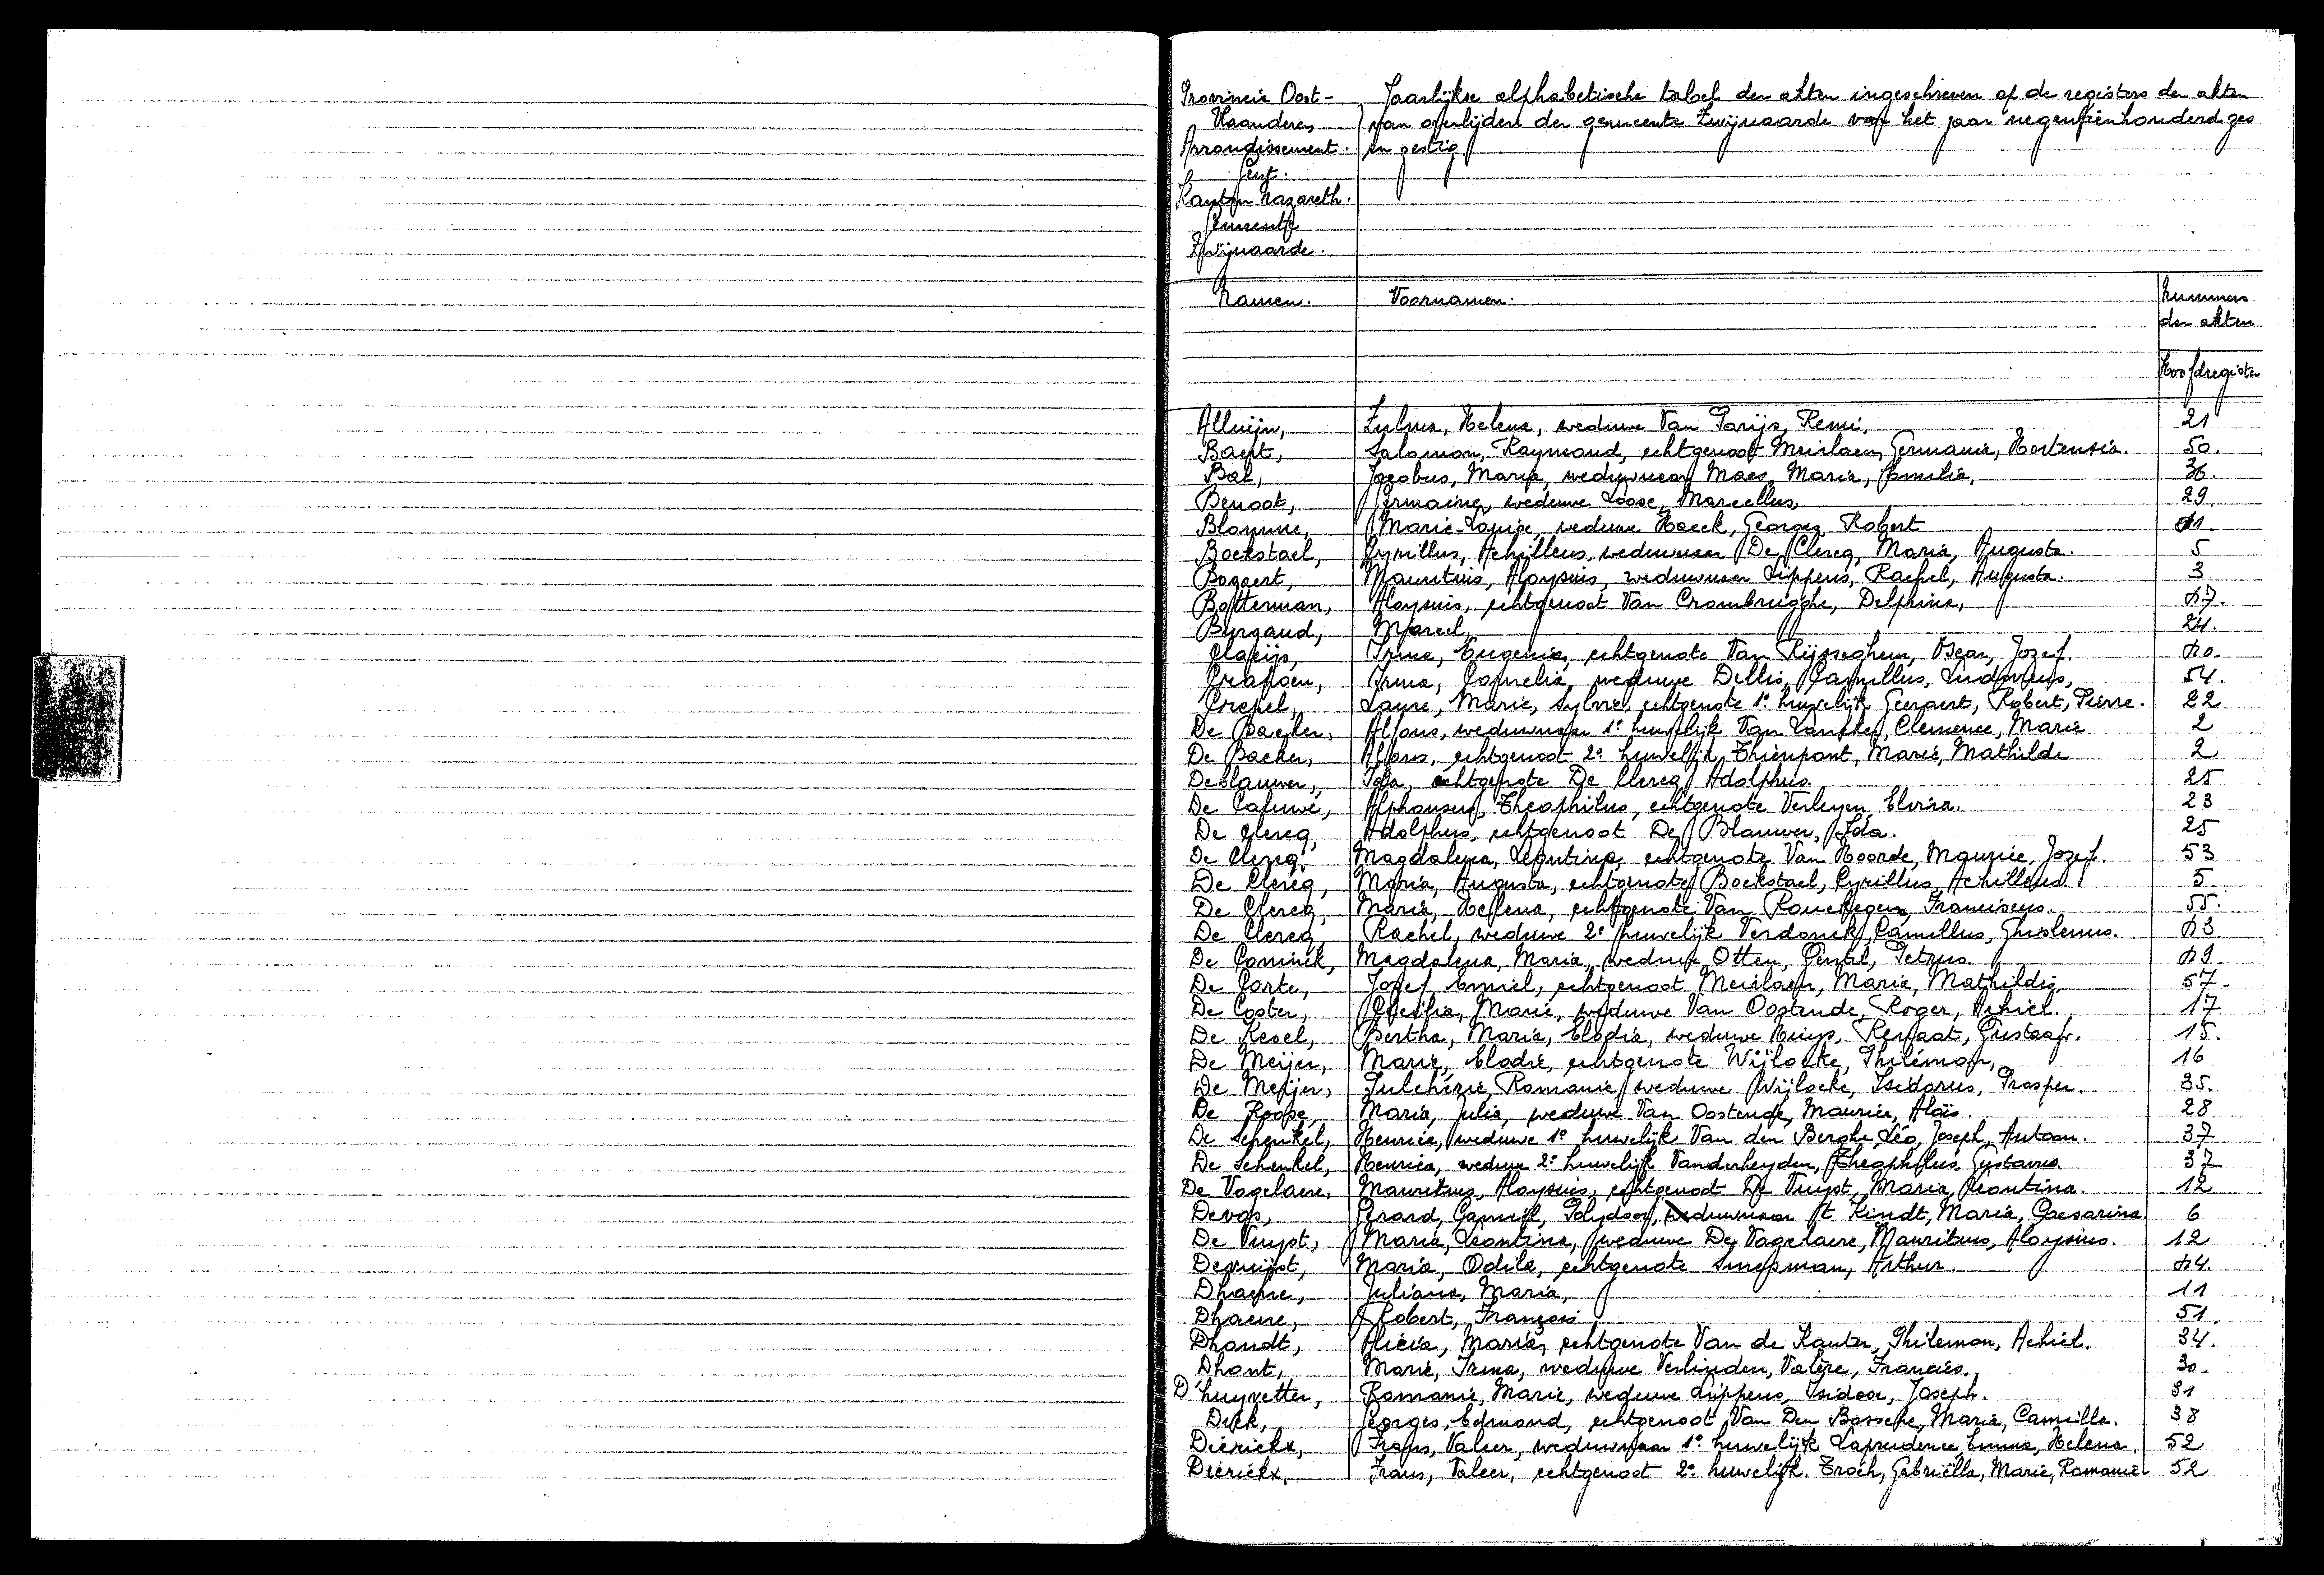 Provincie Oost-
Vlaanderen
Arrondissement
Gent.
Kanton Nazareth.
Gemeente
Zwijnaarde.
Jaarlijkse alphabetische tabel der akten ingeschreven op de registers der akten
van overlijden der gemeente Zwijnaarde van het jaar negentienhonderd zes
en zestig
Namen. Voornamen. Nummers
der akten
Hoofdregister
Alluijn, Zulma, Helena, weduwe Van Parijs, Remi, 21
Baert, Salomon, Raymond, echtgenoot Meirlaen, Germania, Hortensia. 50.
Bal, Jacobus, Maria, weduwnaar Maes, Maria, Emilia, 36.
Benoot, Germaine, weduwe Loose, Marcellus, 29.
Blomme, Marie-Louise, weduwe Haeck, Georges, Robert 41.
Boekstael, Cyrillus, Achilleus, weduwnaar De Clercq, Maria, Augusta. 5
Bogaert, Mauritius, Aloysius, weduwnaar Lippens, Rachel, Augusta. 3
Botterman, Aloysius, echtgenoot Van Crombrugghe, Delphina, 47.
Burgaud, Marcel, 24.
Claeijs, Irma, Eugenia, echtgenote Van Rijsseghem, Oscar, Jozef. 40.
Crapoen, Irma, Cornelia, weduwe Dellis, Camillus, Ludovicus, 54.
Crepel, Laure, Marie, Sylvie, echtgenote 1e huwelijk Geeraert, Robert, Pierre. 22
De Backer, Alfons, weduwnaar 1e huwelijk Van Canfker, Clemence, Marie 2
De Backer, Alfons, echtgenoot 2e huwelijk Thienpont, Marie, Mathilde 2
Deblauwer, Ida, echtgenote De Clercq Adolphus. 25
De Caluwé, Alphonsus, Theophilus, echtgenote Verleyen, Elvira. 23
De Clercq, Adolphus, echtgenoot De Blauwer, Ida. 25
De Clercq, Magdalena, Leontina, echtgenote Van Hoorde, Maurice, Jozef. 53
De Clercq, Maria, Augusta, echtgenote Boekstael, Cyrillus, Achilleus. 5
De Clercq, Maria, Helena, echtgenote Van Franciscus. 55.
De Clercq Rachel, weduwe 2e huwelijk Verdonck, Camillus, Ghislenus. 43
De Coninck, Magdalena, Maria, weduwe Otten, Gentil, Petrus. 49.
De Corte, Jozef, Emiel, echtgenoot Meirlaen, Maria, Mathildis, 57.
De Coster, Cecilia, Marie, weduwe Van Oostende, Roger, Achiel. 17
De Kesel, Bertha, Maria, Elodia, weduwe Huys, Renaat, Gustaaf. 15.
De Meijer, Marie, Elodie, echtgenote Wijlocke, Philémon, 16
De Meijer, Pulchérie, Romanie, weduwe Wijlocke, Isidorus, Prosper. 35.
De Roose, Maria, Julia, weduwe Van Oostende, Maurice, Aloïs. 28
De Schenkel, Henrica, weduwe 1e huwelijk Van den Berghe, Léo, Joseph, Antoon. 37
De Schenkel, Henrica, weduwe 2e huwelijk Vanderheyden, Theophilus, Gustavus. 37
De Vogelaere, Mauritius, Aloysius, echtgenoot De Vuyst, Maria, Leontina. 12
Devos, Gerard, Camiel, Polydoor, weduwnaar t Kindt, Maria, Caesarina 6
De Vuyst, Maria, Leontina, weduwe De Vogelaere, Mauritius, Aloysius. 12
Devuijst, Maria, Odila, echtgenote Snoeman, Arthur. 44.
Dhaene, Juliana, Maria, 11
Dhaene, Robert, François 51.
Dhondt, Alicia, Maria, echtgenote Van de Kauter, Philemon, Achiel. 34.
Dhont, Marie, Irma, weduwe Verlinden, Valère, Francies. 30.
D'huyvetter, Romanie, Marie, weduwe Lippens, Isidoor, Joseph. 31
Dick, Georges, Edmond, echtgenoot Van Den Bossche, Maria, Camilla. 38
Dierickx, Frans, Valeer, weduwnaar 1e huwelijk Laprudence, Emma, Helena. 52
Dierickx, Frans, Valeer, echtgenoot 2e huwelijk. Troch, Gabriëlla, Marie, Romanie 52